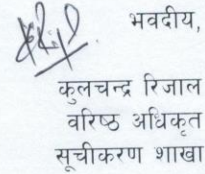 भवदीय,
कुलचन्द्र रिजाल
वरिष्ठ अधिकृत
सूचीकरण शाखा